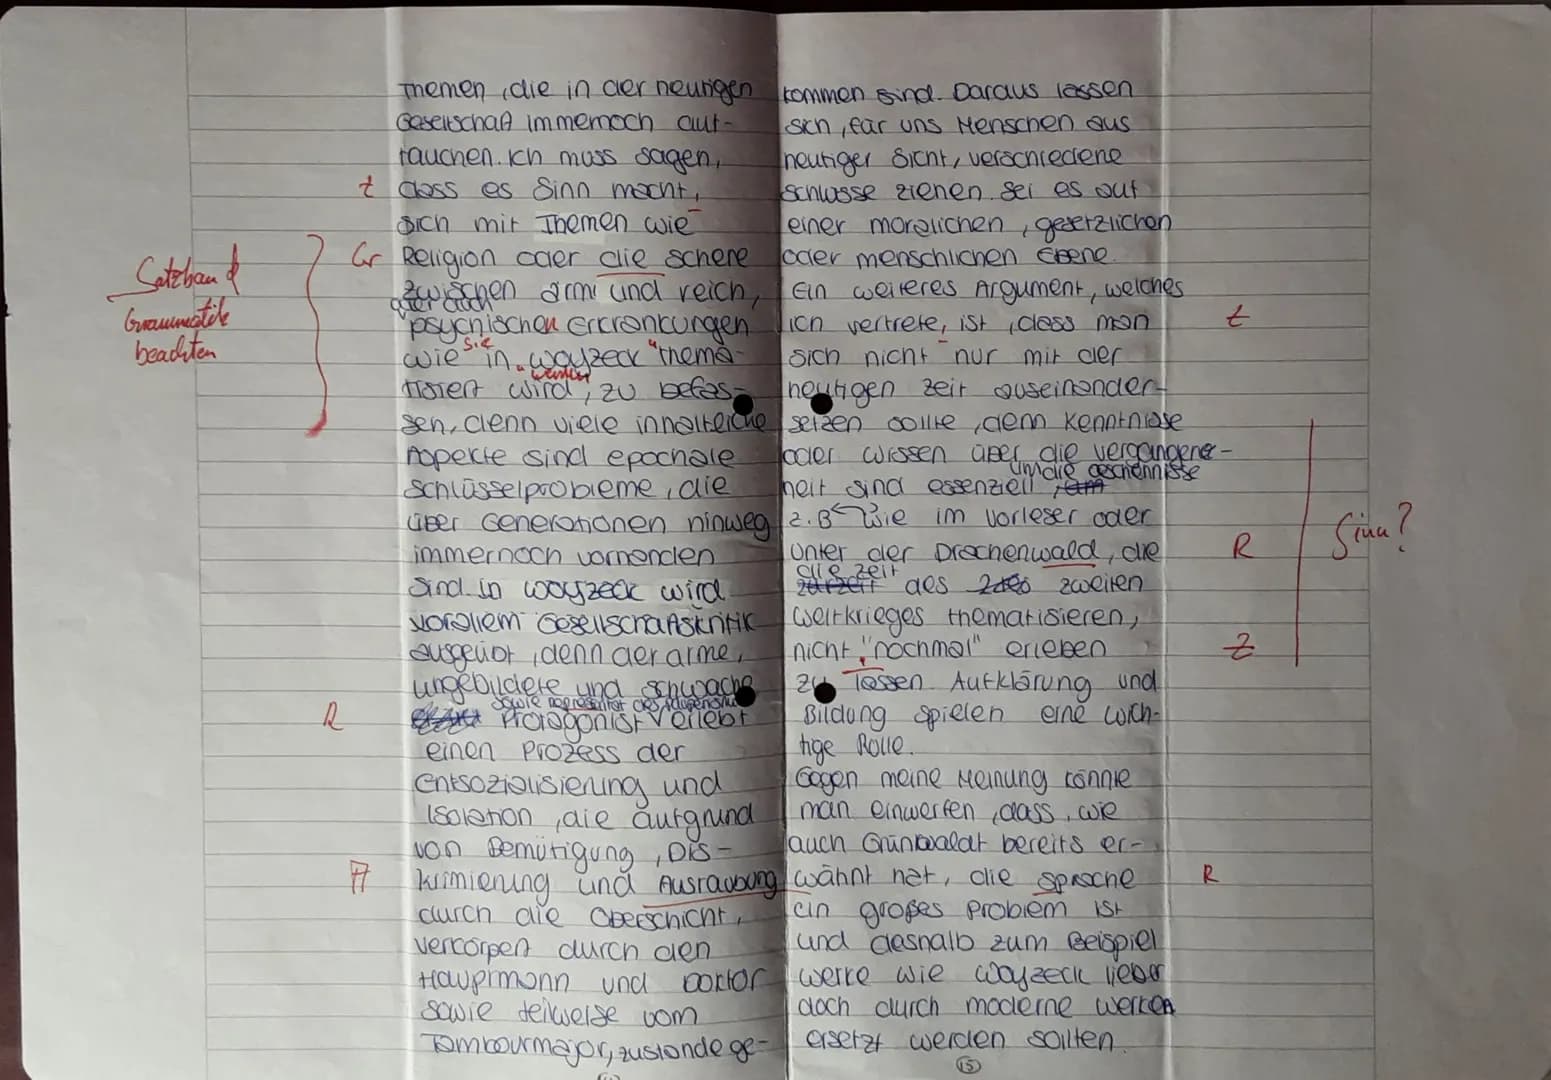 Themen, die in der heutigen
Gesellschaft immernoch auf-
tauchen. Ich muss sagen,
t dass es Sinn macht,
sich mit Themen wie
Gr Religion oder die Schere
zwischen arm und reich,
oder auch
psychischen Erkrankungen
wie sie in "Woyzeck" thema-
tisiert wird, zu befas-
werden
sen, denn viele inhaltliche
Aspekte sind epochale
Schlüsselprobleme, die
über Generationen hinweg
immernoch vorhanden
sind. In Woyzeck wird
vorallem Gesellschaftskritik
ausgeübt, denn der arme,
ungebildete und schwache
sowie Repräsentant des
R Protagonist verlebt
einen Prozess der
Entsozialisierung und
Isolation, die aufgrund
von Demütigung, Dis-
A krimierung und Ausraubung
durch die Oberschicht,
verkörpert durch den
Hauptmann und Doktor
sowie teilweise vom
Tambourmajor, zustande ge-
Satzbau &
Grammatik
beachten
kommen sind. Daraus lassen
sich, für uns Menschen aus
heutiger Sicht, verschiedene
Schlüsse ziehen. Sei es auf
einer moralichen, gesetzlichen
oder menschlichen Ebene.
Ein weiteres Argument, welches
ich vertrete, ist, dass man t
sich nicht nur mit der
heutigen Zeit auseinander-
setzen sollte, denn Kenntnisse
oder Wissen über die Vergangen-
heit sind essenziell, um die Geschehnisse
z.B wie im Vorleser oder
Unter der Drachenwald, die R
die Zeit des zweiten
Weltkrieges thematisieren,
nicht "nochmal" erleben Z
zu lassen. Aufklärung und
Bildung spielen eine wich-
tige Rolle.
Gegen meine Meinung könnte
man einwerfen, dass, wie
auch Grünwaldt bereits er-
wähnt hat, die sprache R
ein großes Problem ist
und deshalb zum Beispiel
Werke wie Woyzeck lieber
doch durch moderne Werken
ersetzt werden sollten.
Sinn?
15